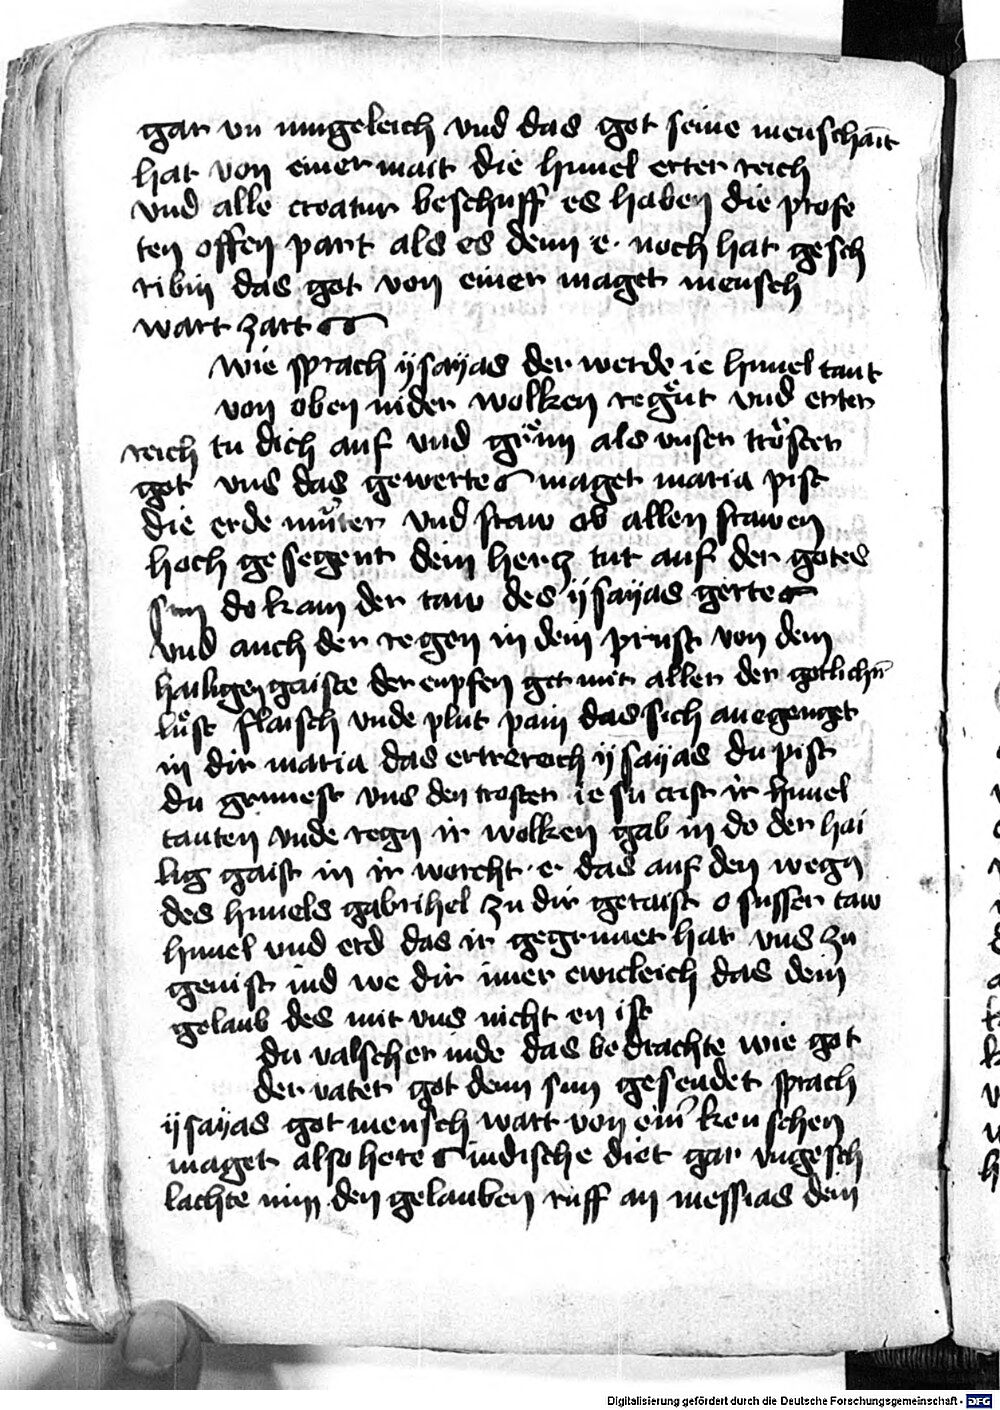 gar vn mugeleich vnd das got seine menschait
hat von einer mait die himel erter reich
vnd alle creatur beschuff es haben die profe
ten offen part als es denn e· noch hat gesch
ribin das got von einer maget mensch
wart zart
wie sprach ysayas der werde ie himel taut
von oben nider wolken regut vnd erter
reich tu dich auf vnd grun als vnser troster
got vns das gewerte maget maria pist
die erde muter vnd fraw ob allen frawen
hoch gesegent dein hercz tut auf der gotes
sun do kam der taw des ysayas gerte
vnd auch der regen in dein prust von dem
hailigen gaiste der enpfenget mit aller der gotlichn
lust flaisch vnde plut pain das sich anegenget
in dir maria das ertrereich ysayas du pist
du grunest vns den troster iesu crist ir himel
tauten vnde regn ir wolken gab in do der hai
lig gaist in ir worcht · e· das auf den wegn
des himels gabrihel zu dir geraist o susser taw
himel vnd erd das ir gegrunet hat vns zu
genist iud we dir imer ewicleich das dein
gelaub des mit vns nicht en ist
du valscher iude das bedrachte wie got
der vater got denn sun gesendet sprach
ysayas got mensch wart von einer keuschen
maget also hete iudische diet gar vngesch
lachte nim den gelauben ruff an messias dem
Digitalisierung gefördert durch die Deutsche Forschungsgemeinschaft - DFG